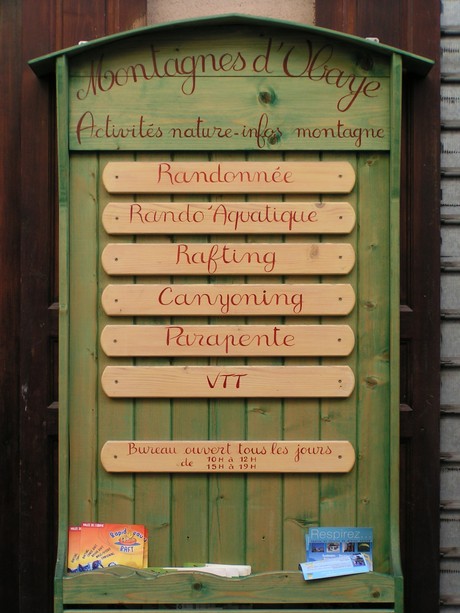 Montagnes d'Ubaye
Activités nature-infos montagne
Randonnée
Rando'Aquatique
Rafting
Canyoning
Parapente
VTT
Bureau ouvert tous les jours
de 10H à 12H
15H à 19H
RAFT
Respirez...